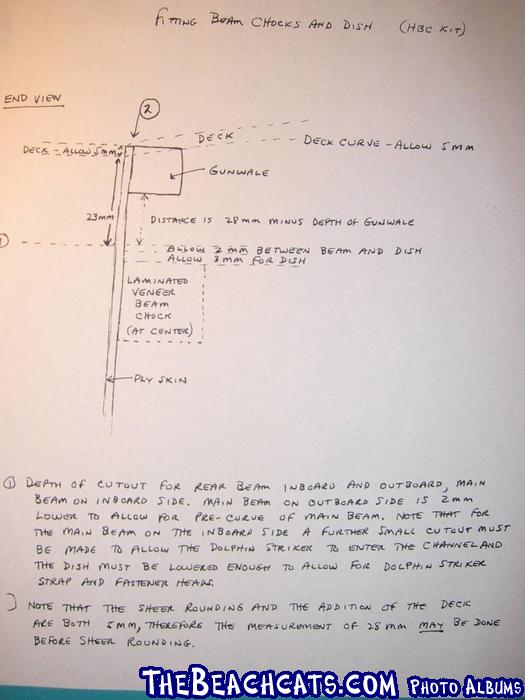 FITTING BEAM CHOCKS AND DISH (HBC KIT)
END VIEW
2
DECK
DECK CURVE - ALLOW 5 MM
DECK - ALLOW 5MM
GUNWALE
23MM
DISTANCE IS 28 MM MINUS DEPTH OF GUNWALE
1
ALLOW 2 MM BETWEEN BEAM AND DISH
ALLOW 3MM FOR DISH
LAMINATED
VENEER
BEAM
CHOCK
(AT CENTER)
PLY SKIN
1 DEPTH OF CUTOUT FOR REAR BEAM INBOARD AND OUTBOARD, MAIN
BEAM ON INBOARD SIDE. MAIN BEAM ON OUTBOARD SIDE IS 2MM
LOWER TO ALLOW FOR PRE-CURVE OF MAIN BEAM. NOTE THAT FOR
THE MAIN BEAM ON THE INBOARD SIDE A FURTHER SMALL CUTOUT MUST
BE MADE TO ALLOW THE DOLPHIN STRIKER TO ENTER THE CHANNEL AND
THE DISH MUST BE LOWERED ENOUGH TO ALLOW FOR DOLPHIN STRIKER
STRAP AND FASTENER HEADS.
) NOTE THAT THE SHEER ROUNDING AND THE ADDITION OF THE DECK
ARE BOTH 5MM, THEREFORE THE MEASUREMENT OF 28 MM MAY BE DONE
BEFORE SHEER ROUNDING.
THEBEACHCATS.COM PHOTO ALBUMS